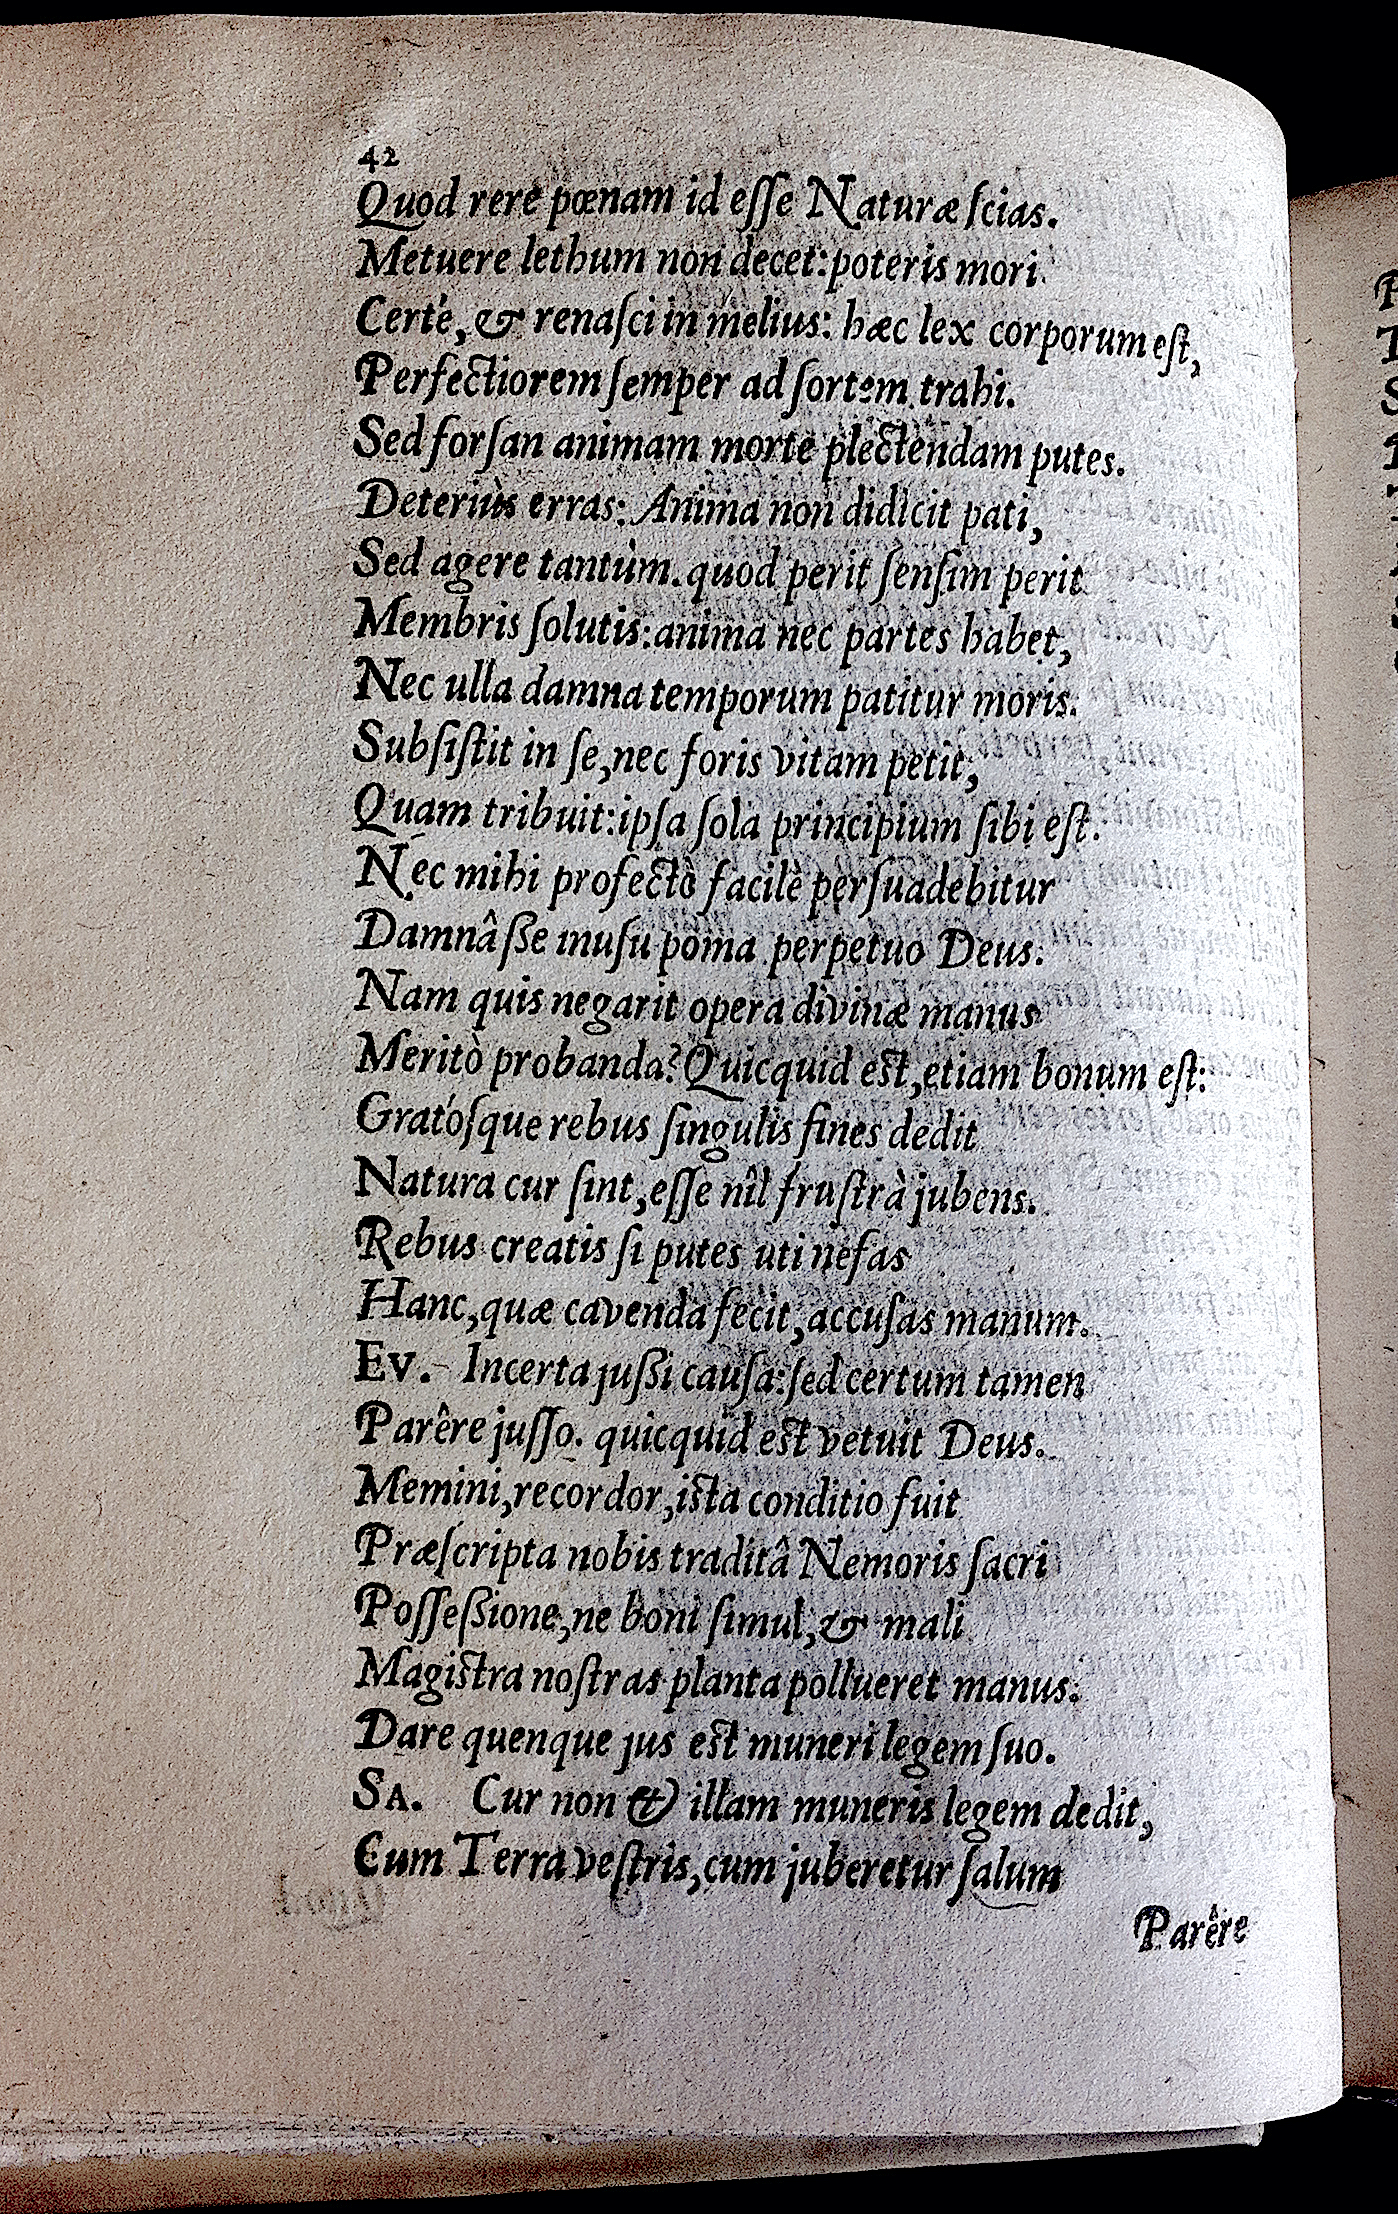 42
Quod rere pœnam id eſſe Naturæ ſcias.
Metuere lethum non decet: poteris mori
Certè, & renaſci in melius: hæc lex corporum eſt,
Perfectiorem ſemper ad ſortem trahi.
Sed forſan animam morte plectendam putes.
Deteriùs erras: Anima non didicit pati,
Sed agere tantùm. quod perit ſenſim perit
Membris ſolutis: anima nec partes habet,
Nec ulla damna temporum patitur moris.
Subſiſtit in ſe, nec foris vitam petit,
Quam tribuit: ipſa ſola principium ſibi eſt.
Nec mihi profectò facilè perſuadebitur
Damnâſſe inuſu poma perpetuo Deus:
Nam quis negarit opera divinæ manus
Meritò probanda? Quicquid eſt, etiam bonum eſt:
Gratóſque rebus ſingulis fines dedit
Natura cur ſint, eſſe nîl fruſtrà jubens.
Rebus creatis ſi putes uti nefas
Hanc, quæ cavenda fecit, accuſas manum.
Ev. Incerta juſſi cauſa: ſed certum tamen
Parêre juſſo. quicquid eſt vetuit Deus.
Memini, recordor, iſta conditio fuit
Præſcripta nobis traditâ Nemoris ſacri
Poſſeſſione, ne boni ſimul, & mali
Magiſtra noſtras planta pollueret manus:
Dare quenque jus eſt muneri legem ſuo.
SA. Cur non & illam muneris legem dedit,
Cum Terra veſtris, cum juberetur ſalum
Parêre